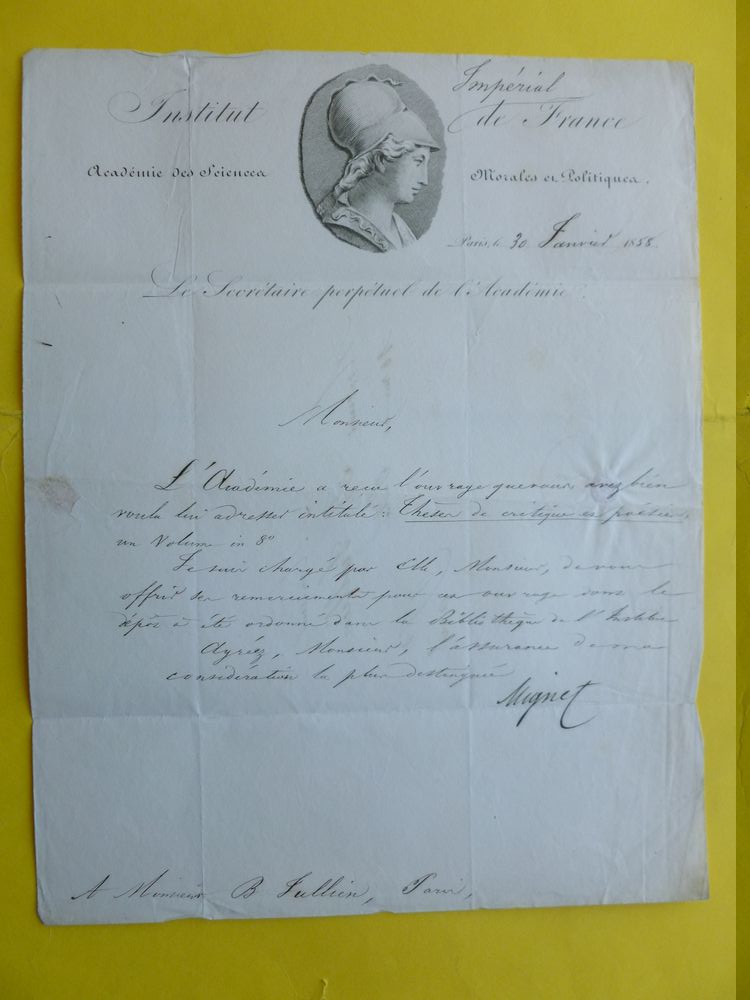 Institut Impérial de France
Académie des Sciences Morales et Politiques.
Paris, le 30 Janvier 1858.
Le Secrétaire perpétuel de l'Académie
Monsieur,
L'Académie a reçu l'ouvrage que vous avez bien
voulu lui adresser intitulé : Thèses de critique et poésies,
un Volume in 8º
Je suis chargé par Elle, Monsieur, de vous
offrir ses remerciements pour cet ouvrage dont le
dépôt a été ordonné dans la Bibliothèque de l'Institut
Agréez, Monsieur, l'assurance de ma
considération la plus distinguée
Mignet
A Monsieur B Jullien, Paris,